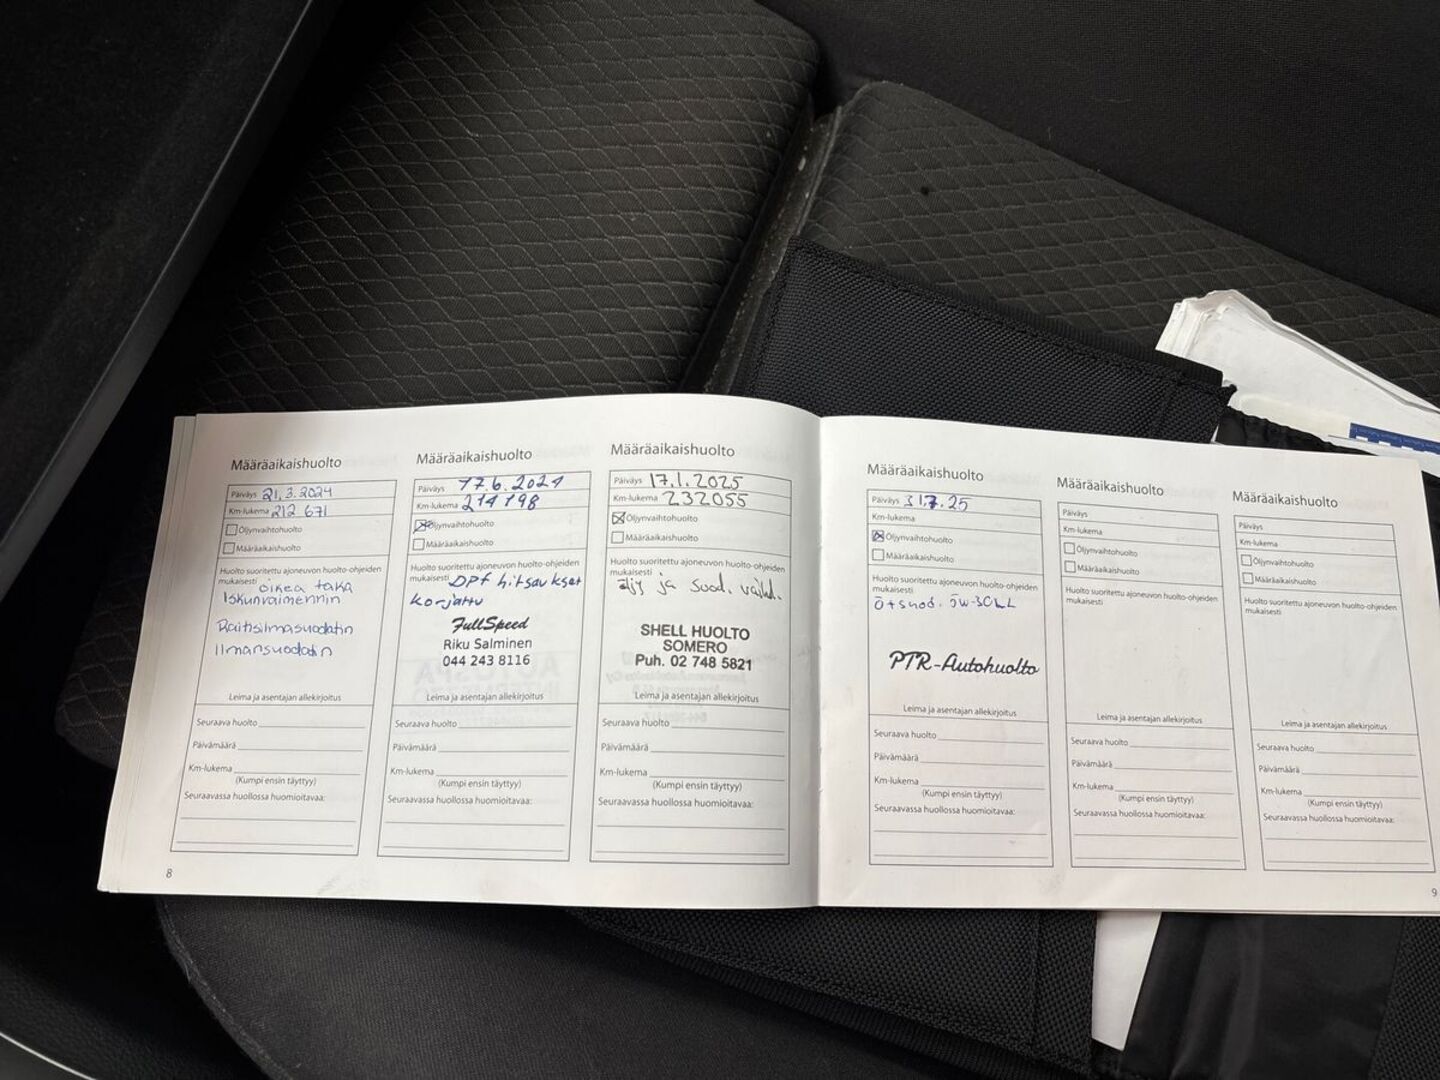 Määräaikaishuolto
Päiväys 21.3.2024
Km-lukema 212 671
Öljynvaihtohuolto
Määräaikaishuolto
Huolto suoritettu ajoneuvon huolto-ohjeiden
mukaisesti oikea taka
Iskunvaimennin
Raitisilmasuodatin
Ilmansuodatin
Leima ja asentajan allekirjoitus
Seuraava huolto
Päivämäärä
Km-lukema
(Kumpi ensin täyttyy)
Seuraavassa huollossa huomioitavaa:
8
Määräaikaishuolto
Päiväys 17.6.2024
Km-lukema 214198
Öljynvaihtohuolto
Määräaikaishuolto
Huolto suoritettu ajoneuvon huolto-ohjeiden
mukaisesti DPF hitsaukset
korjattu
FullSpeed
Riku Salminen
044 243 8116
Leima ja asentajan allekirjoitus
Seuraava huolto
Päivämäärä
Km-lukema
(Kumpi ensin täyttyy)
Seuraavassa huollossa huomioitavaa:
Määräaikaishuolto
Päiväys 17.1.2025
Km-lukema 232055
Öljynvaihtohuolto
Määräaikaishuolto
Huolto suoritettu ajoneuvon huolto-ohjeiden
mukaisesti
öljy ja suod. vaihd.
SHELL HUOLTO
SOMERO
Puh. 02 748 5821
Leima ja asentajan allekirjoitus
Seuraava huolto
Päivämäärä
Km-lukema
(Kumpi ensin täyttyy)
Seuraavassa huollossa huomioitavaa:
Määräaikaishuolto
Päiväys 31.7.25
Km-lukema
Öljynvaihtohuolto
Määräaikaishuolto
Huolto suoritettu ajoneuvon huolto-ohjeiden
mukaisesti
Ö+suod.
PTR-Autohuolto
Leima ja asentajan allekirjoitus
Seuraava huolto
Päivämäärä
Km-lukema
(Kumpi ensin täyttyy)
Seuraavassa huollossa huomioitavaa:
Määräaikaishuolto
Päiväys
Km-lukema
Öljynvaihtohuolto
Määräaikaishuolto
Huolto suoritettu ajoneuvon huolto-ohjeiden
mukaisesti
Leima ja asentajan allekirjoitus
Seuraava huolto
Päivämäärä
Km-lukema
(Kumpi ensin täyttyy)
Seuraavassa huollossa huomioitavaa:
Määräaikaishuolto
Päiväys
Km-lukema
Öljynvaihtohuolto
Määräaikaishuolto
Huolto suoritettu ajoneuvon huolto-ohjeiden
mukaisesti
Leima ja asentajan allekirjoitus
Seuraava huolto
Päivämäärä
Km-lukema
(Kumpi ensin täyttyy)
Seuraavassa huollossa huomioitavaa:
9